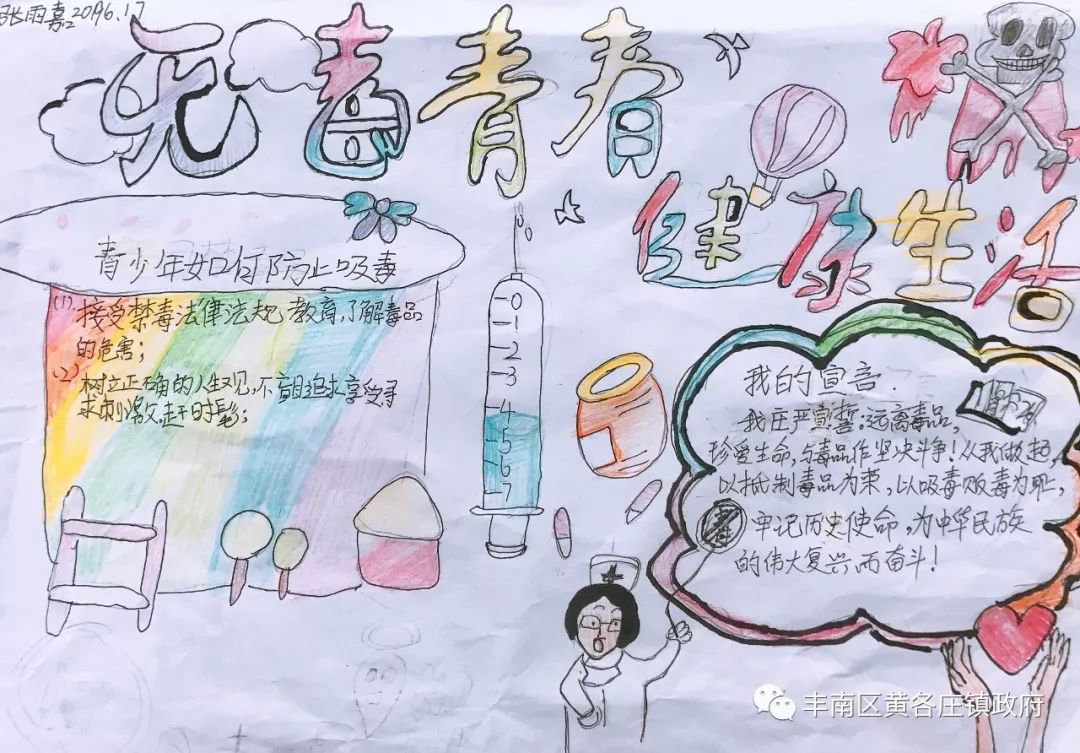 张雨嘉2096.17
无毒青春
健康生活
青少年如何防止吸毒
(1).接受禁毒法律法规教育,了解毒品
的危害;
(2)树立正确的人生观,不盲目追求享受寻
求刺激,赶时髦;
0
1
2
3
4
5
6
7
我的宣言.
我庄严宣誓:远离毒品,
珍爱生命,与毒品作坚决斗争!从我做起,
以抵制毒品为荣,以吸毒贩毒为耻,
牢记历史使命,为中华民族
的伟大复兴而奋斗!
毒
丰南区黄各庄镇政府